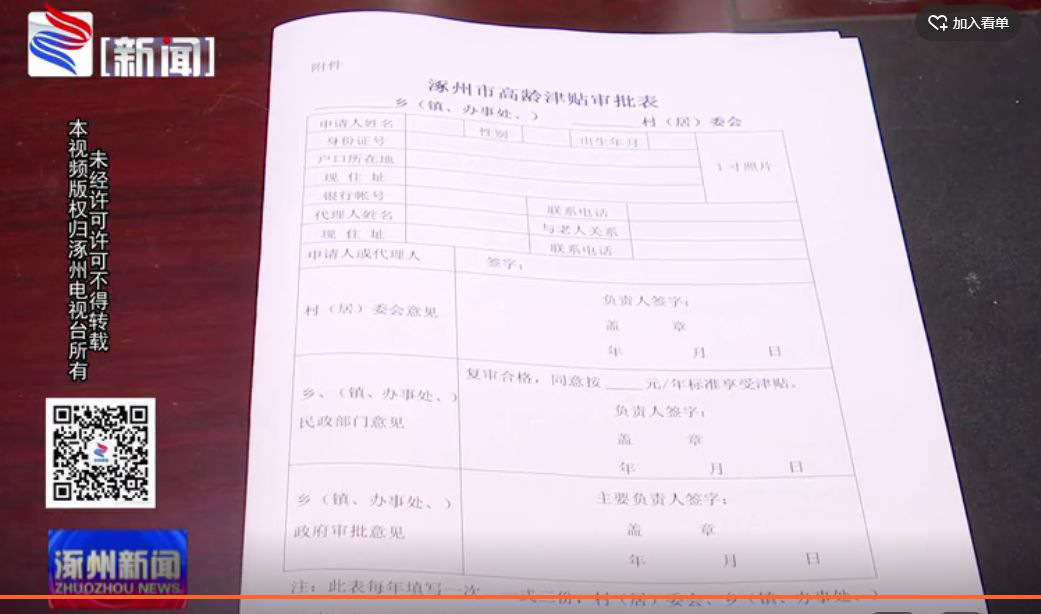 加入看单
[新闻]
本视频版权归涿州电视台所有
未经许可许可不得转载
附件
涿州市高龄津贴审批表
乡（镇、办事处、） 村（居）委会
申请人姓名 性别 出生年月
1寸照片
身份证号
户口所在地
现 住 址
银行帐号
代理人姓名 联系电话
现 住 址 与老人关系
联系电话
申请人或代理人 签字：
村（居）委会意见
负责人签字：
盖 章
年 月 日
乡、（镇、办事处、）
民政部门意见
复审合格，同意按____元/年标准享受津贴。
负责人签字：
盖 章
年 月 日
乡（镇、办事处、）
政府审批意见
主要负责人签字：
盖 章
年 月 日
注：此表每年填写一次 一式三份，村（居）委会、乡（镇、办事处、）
涿州新闻
ZHUOZHOU NEWS